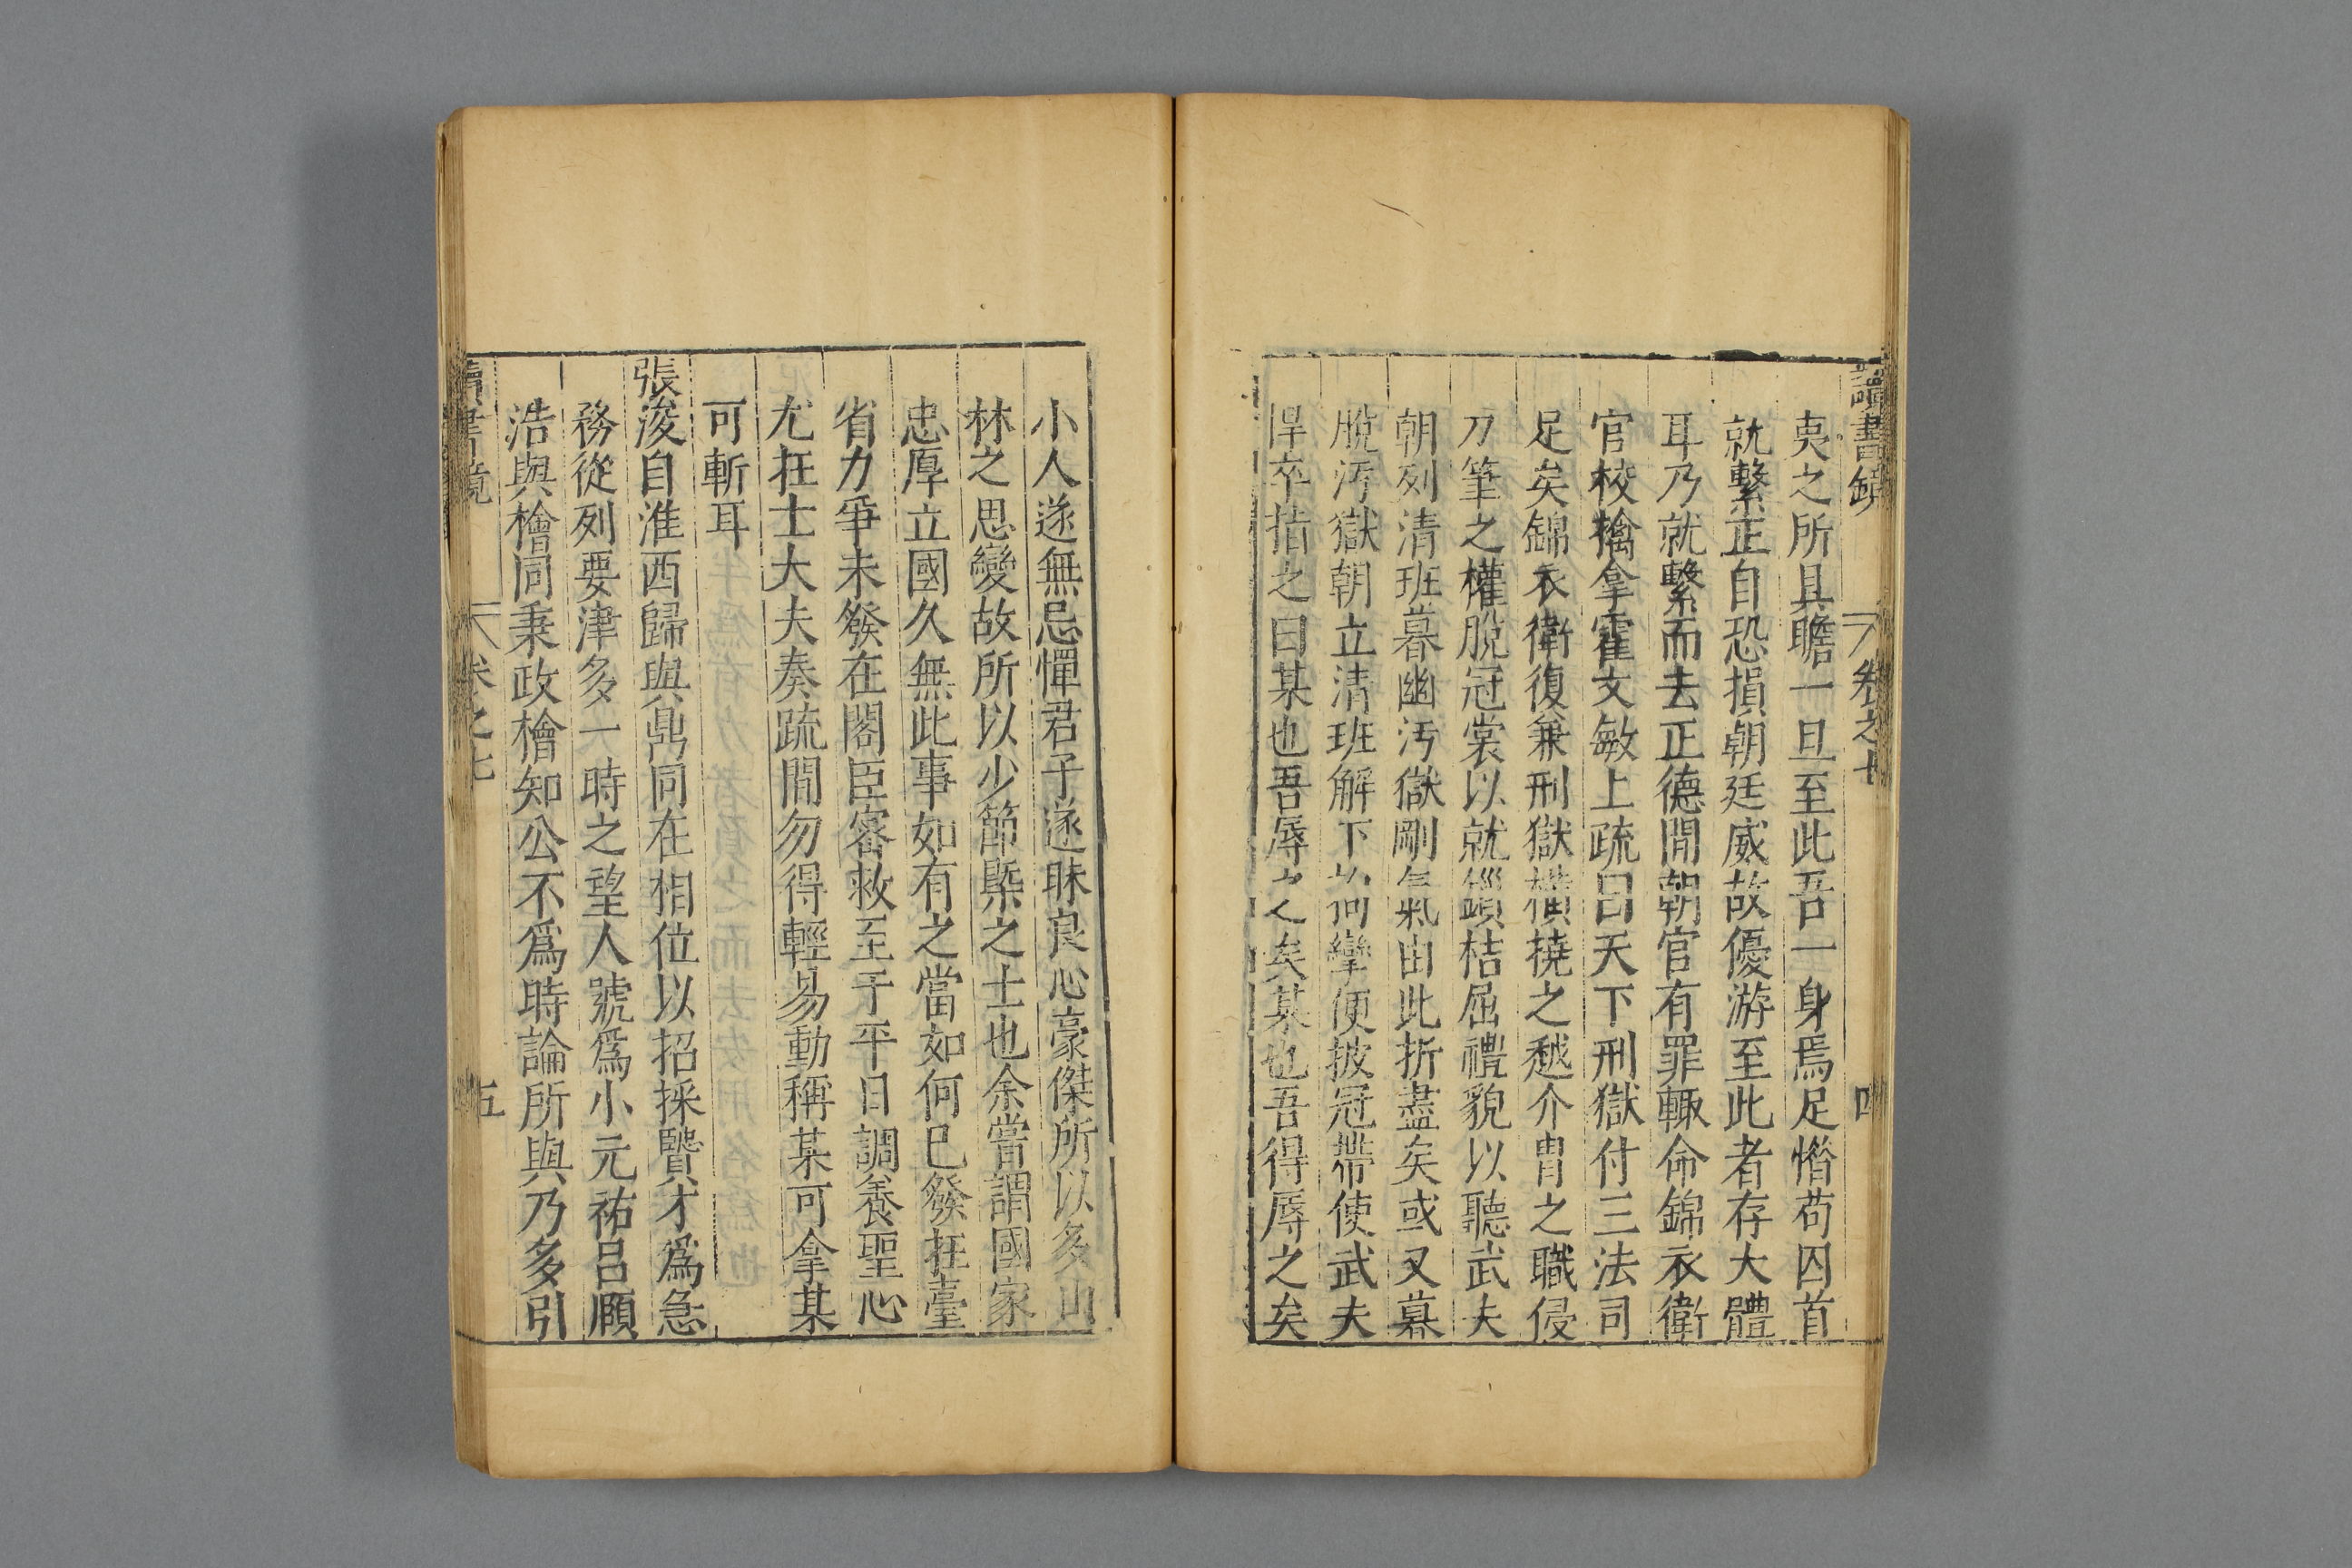 讀書鏡 卷之七 四
夷之所具瞻一旦至此吾一身焉足惜苟囚首
就繫正自恐損朝廷威故優游至此者存大體
耳乃就繫而去正德間朝官有罪輙命錦衣衛
官校擒拿霍文敏上疏曰天下刑獄付三法司
足矣錦衣衛復兼刑獄横撓之越介胄之職侵
刀筆之權脫冠裳以就鏁桔屈禮貌以聽武夫
朝列清班暮幽汚獄剛氣由此折盡矣或又暮
脫汚獄朝立清班解下拘攣便披冠帶使武夫
悍卒指之曰某也吾辱之矣某也吾得辱之矣
小人遂無忌憚君子遂昧良心豪傑所以多山
林之思變故所以少節槩之士也余嘗謂國家
忠厚立國久無此事如有之當如何已發在臺
省力爭未發在閣臣密救至于平日調養聖心
尤在士大夫奏疏間勿得輕易動稱某可拿某
可斬耳
張浚自淮西歸與鼎同在相位以招採賢才爲急
務從列要津多一時之望人號爲小元祐呂頤
浩與檜同秉政檜知公不爲時論所與乃多引
讀書鏡 卷之七 五